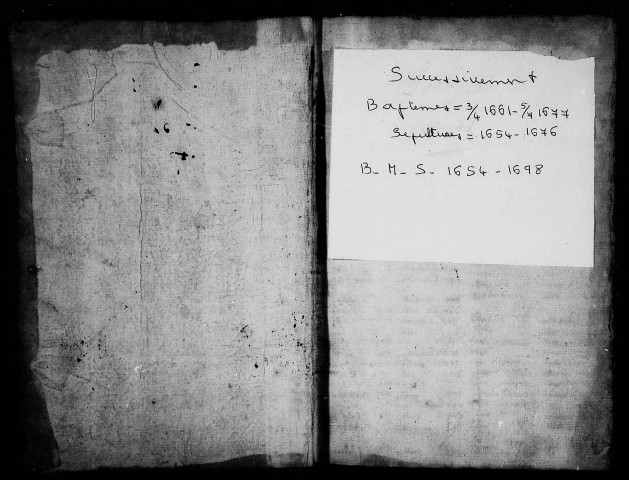 Successivement
Baptemes = 3/4 1661 - 5/4 1677
Sepultures = 1654 - 1676
B - M - S - 1654 - 1698